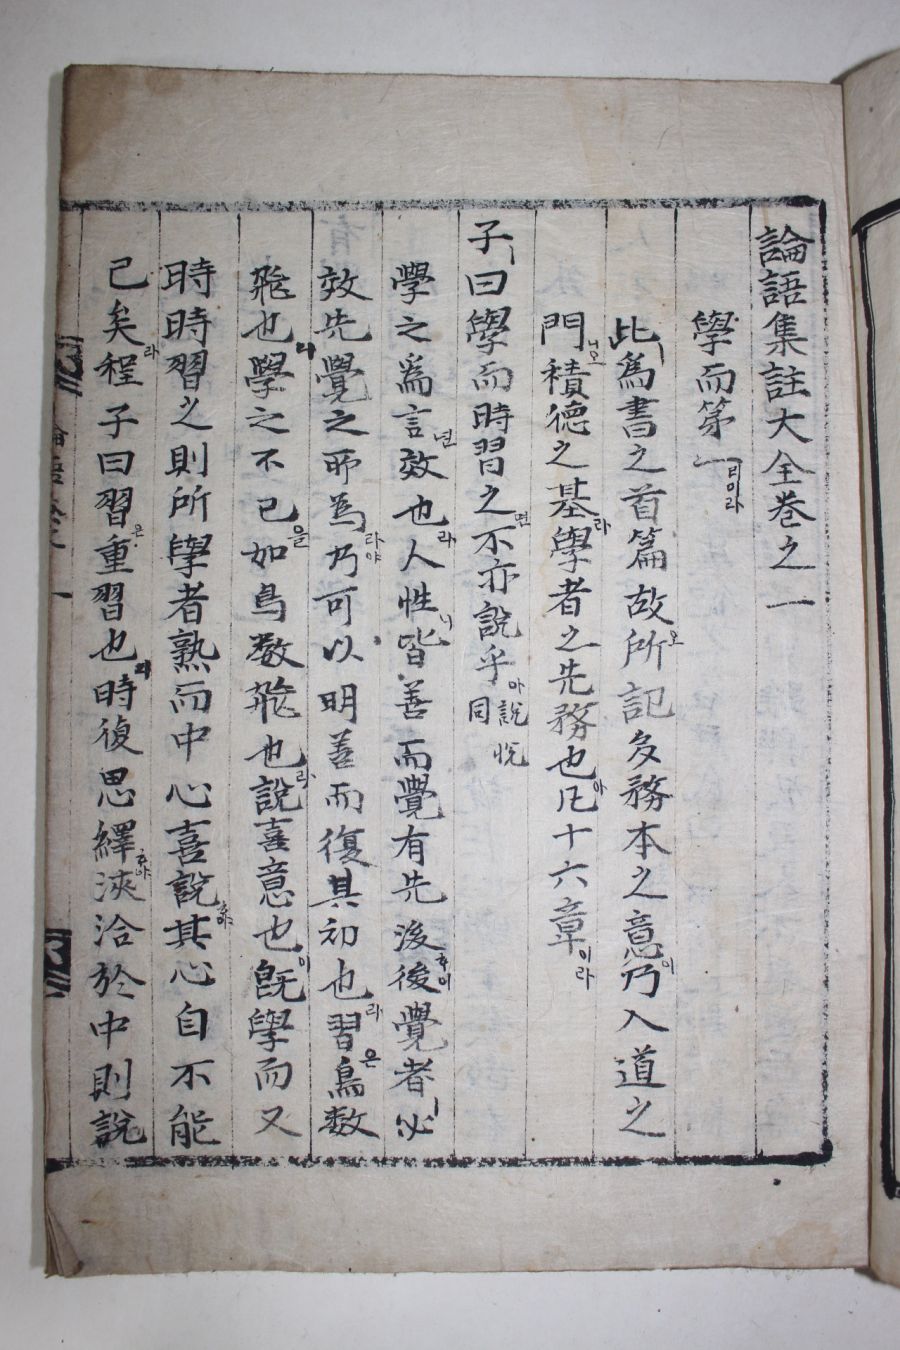 論語集註大全卷之一
學而第一 ㅣ이라
此ㅣ爲書之首篇故所記오多務本之意이乃入道之
門니오積德之基라學者之先務也아凡十六章이라
子ㅣ曰學而時習之면不亦說乎아說悅同
學之爲言년效也라人性이皆善而覺有先後ᄒᆞ이後覺者ㅣ必
效先覺之所爲라야乃可以明善而復其初也라習은鳥數
飛也라學之不已을如鳥數飛也라說喜意也이旣學而又
時時習之則所學者熟而中心喜說ᄒᆞ야其心自不能
已矣라程子曰習은重習也라時復思繹ᄒᆞ야浹洽於中則說